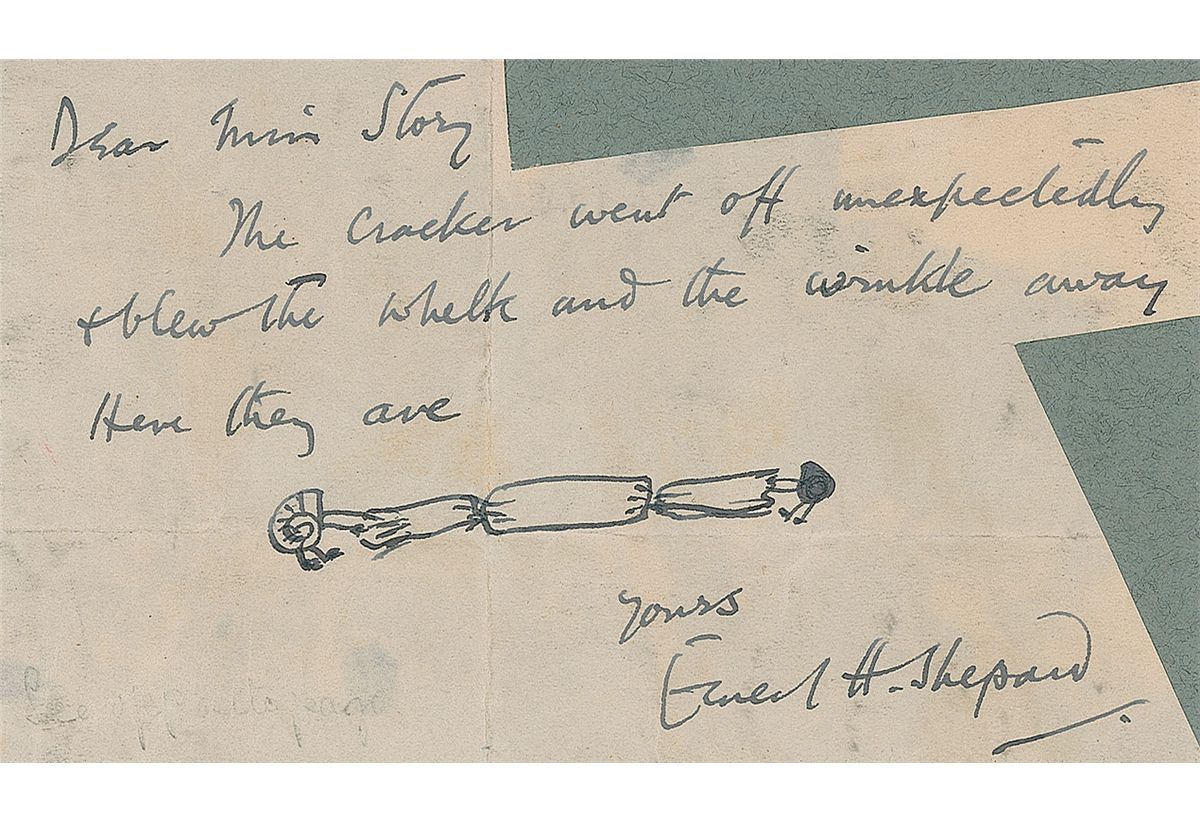 Dear Miss Story
The cracker went off unexpectedly
& blew the whelk and the winkle away
Here they are
Yours
Ernest H. Shepard